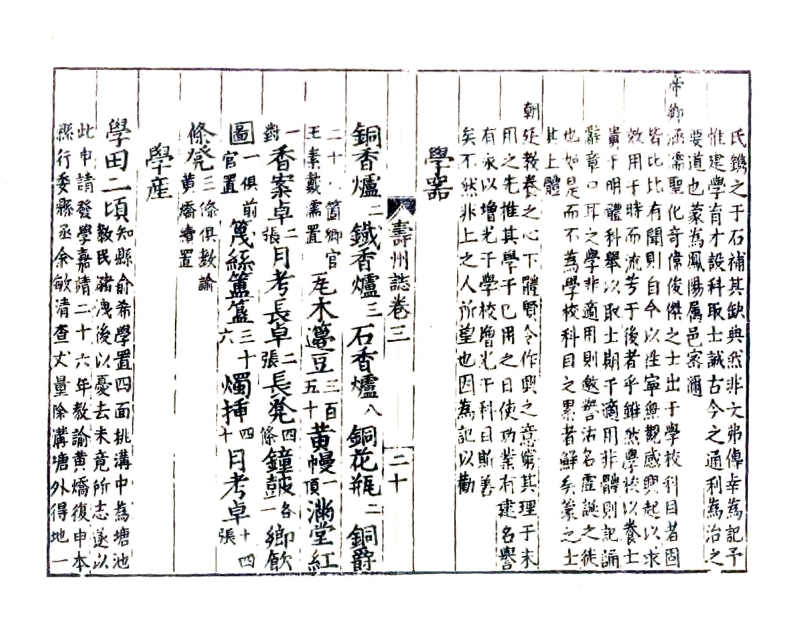 氏鐫之于石補其缺典然非文弗傳幸為記予
惟建學育才設科取士誠古今之通利為治之
要道也蒙為鳳陽屬邑密邇
帝鄉涵濡聖化奇偉俊傑之士出于學校科目者固
皆比比有聞則自今以往寧無觀感興起以求
效用于時而流芳于後者乎雖然學校以養士
貴于明體科舉以取士期于適用非體則記誦
辭章口耳之學非適用則邀譽沽名虛誕之徒
也如是而不為學校科目之累者鮮矣蒙之士
其上體
朝廷教養之心下體賢令作興之意窮其理于未
用之先推其學于已用之日使功業有建名譽
有永以增光于學校增光于科目斯善
矣不然非上之人所望也因為記以勸
學器
壽州誌卷三 二十
銅香爐二鐵香爐三石香爐八銅花瓶二銅爵
二十八箇鄉官王素戴濡置尾木籩豆三百五十黄幔一頂滿堂紅
一對香案卓二張月考長卓二張長凳四條鐘鼓各一鄉飲
圖一俱前官置篾絲簠簋三十六燭挿四十月考卓十四張
條凳三條俱教諭黄㷡續置
學產
學田二頃知縣俞希學置四面挑溝中為塘池教民豬洩後以憂去未竟所志遂以
此申請發學嘉靖二十六年教諭黄㷡復申本
縣行委縣丞余敏清查丈量除溝塘外得地一